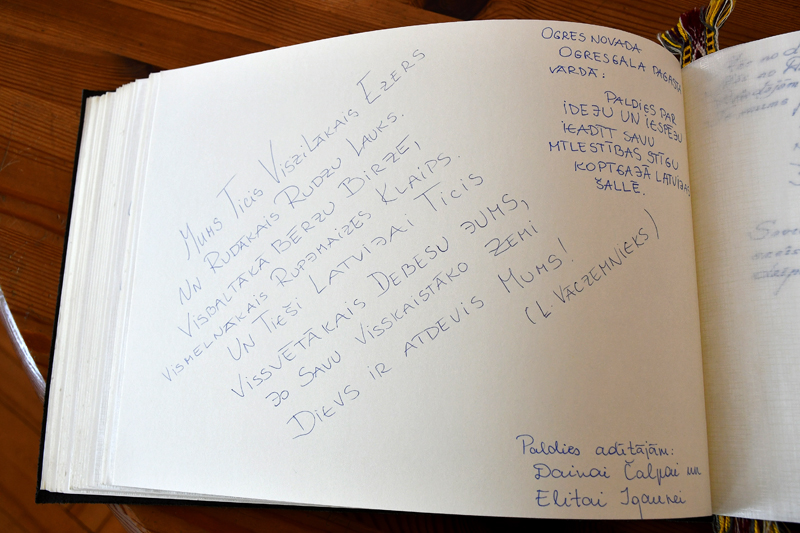 OGRES NOVADA
OGRESGALA PAGASTA
VĀRDĀ:
PALDIES PAR
IDEJU UN IESPĒJU
IEADĪT SAVU
MĪLESTĪBAS STĪGU
KOPTGAJĀ LATVIJAS
ŠALLĒ.
MUMS TICIS VISZILĀKAIS EZERS
UN RUDĀKAIS RUDZU LAUKS.
VISBALTĀKĀ BĒRZU BIRZE,
VISMELNĀKAIS RUPJMAIZES KLAIPS.
UN TIEŠI LATVIJAI TICIS
VISSVĒTĀKAIS DEBESU JUMS,
JO SAVU VISSKAISTĀKO ZEMI
DIEVS IR ATDEVIS MUMS!
(L. VĀCZEMNIEKS)
Paldies adītājām:
Dainai Čalpai un
Elitai Igaunei